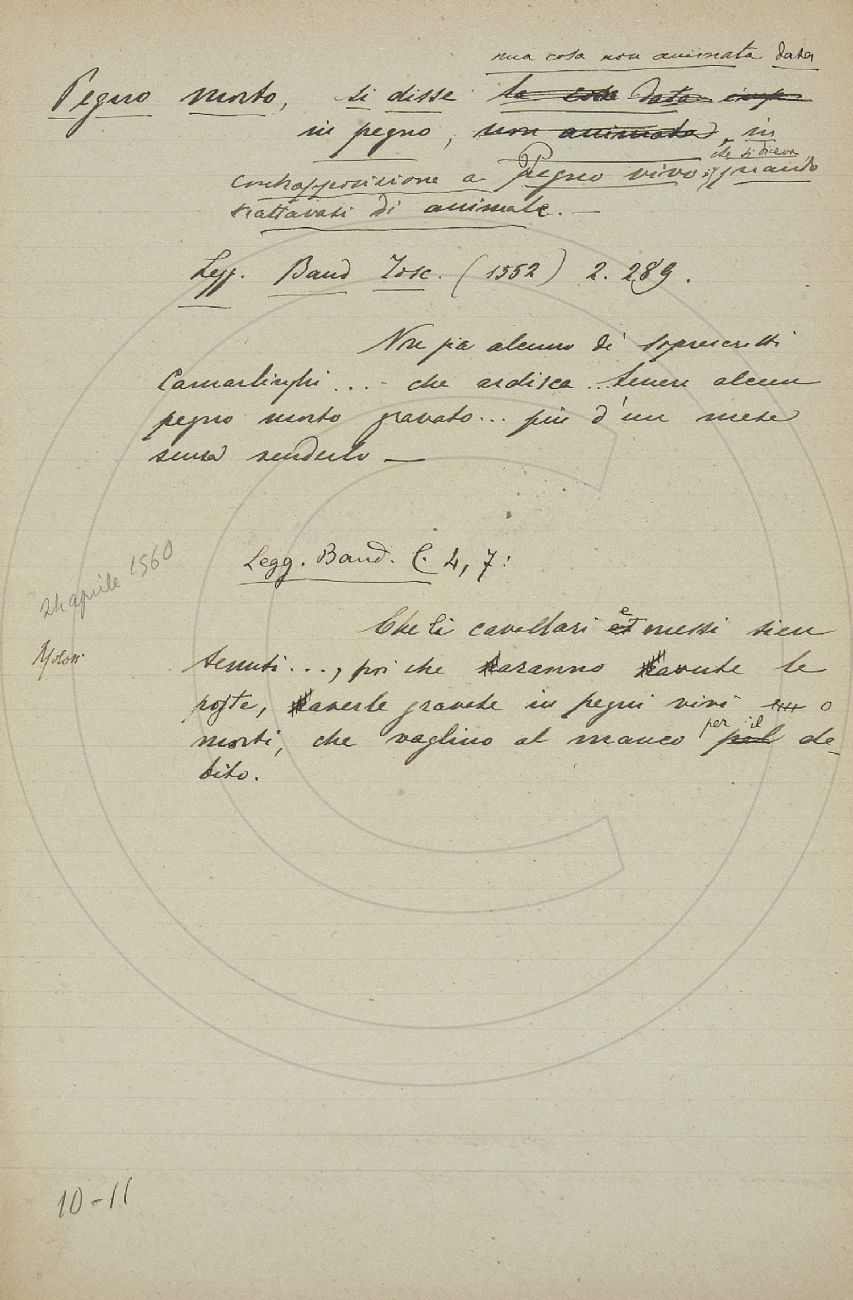 una cosa non animata data
Pegno morto, si disse la cosa data
in pegno, non animata, in
che si diceva
contrapposizione a Pegno vivo, quando
trattavasi di animale. —
Legg. Band Tosc. (1552) 2. 289.
Non sia alcuno di soprascritti
Camarlinghi .... che ardisca tenere alcun
pegno morto gravato... più d'un mese
senza renderlo —
Legg. Band. C. 4, 7:
24 aprile 1560
e
Che li cavallari et messi sien
tenuti..., poi che aranno avute le
poste, averle gravate in pegni vivi o
per il
morti, che vaglino al manco pel de-
bito.
10-11